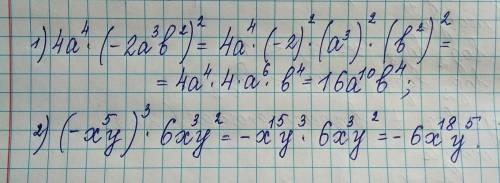 1) 4a⁴·(-2a³b²)² = 4a⁴·(-2)²·(a³)²·(b²)² =
= 4a⁴·4·a⁶·b⁴ = 16a¹⁰b⁴;
2) (-x⁵y)³·6x³y² = -x¹⁵y³·6x³y² = -6x¹⁸y⁵.